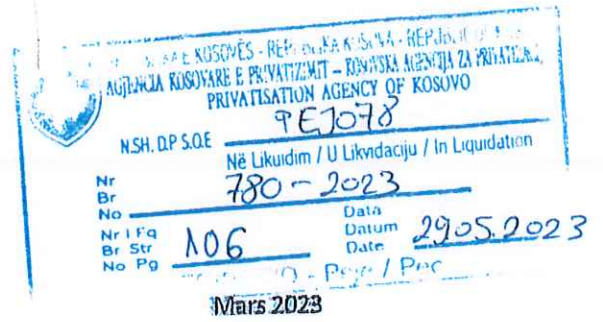 KOSOVËS - REPUBLIKA KOSOVA -
AGJENCIA KOSOVARE E PRIVATIZIMIT – KOSOVSKA AGENCIJA ZA PRIVATIZACIJU
PRIVATISATION AGENCY OF KOSOVO
N.SH. D.P S.O.E PEJ078
Në Likuidim / U Likvidaciju / In Liquidation
Nr
Br
No 780 - 2023
Nr i Fq
Br Str
No Pg 106
Data
Datum
Date 29.05.2023
Peja / Peć
Mars 2023